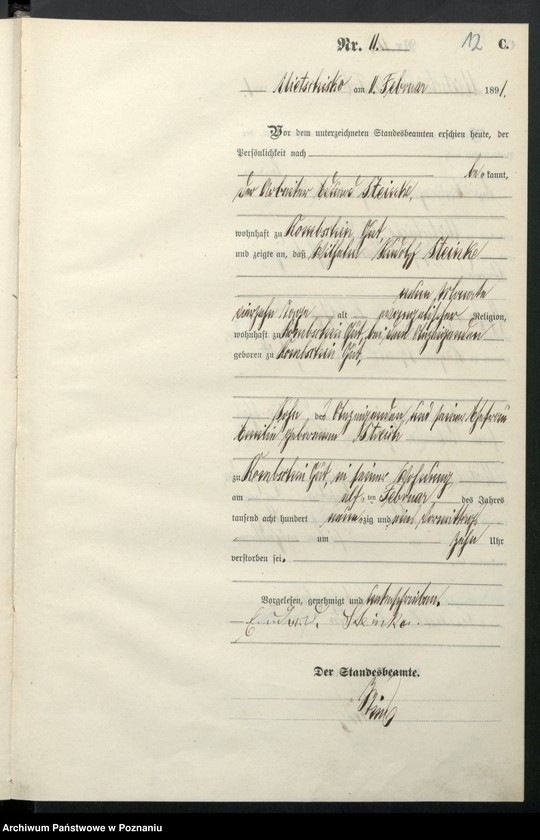 Nr. 11. 12 C.
Mietschisko am 11. Februar 1891.
Vor dem unterzeichneten Standesbeamten erschien heute, der
Persönlichkeit nach
be kannt,
der Arbeiter Eduard Steinke,
wohnhaft zu Gut,
und zeigte an, daß Wilhelm Rudolf Steinke
neun Monate
vierzehn Tage alt evangelischer Religion,
wohnhaft zu Gut, bei dem Anzeigenden
geboren zu Gut,
Sohn des Anzeigenden und seiner Ehefrau
Emilie geborenen
zu Gut, in seiner Wohnung
am elf ten Februar des Jahres
tausend acht hundert neun zig und eins Vormittags
um zehn Uhr
verstorben sei.
Vorgelesen, genehmigt und unterschrieben.
Eduard Steinke.
Der Standesbeamte.
Archiwum Państwowe w Poznaniu